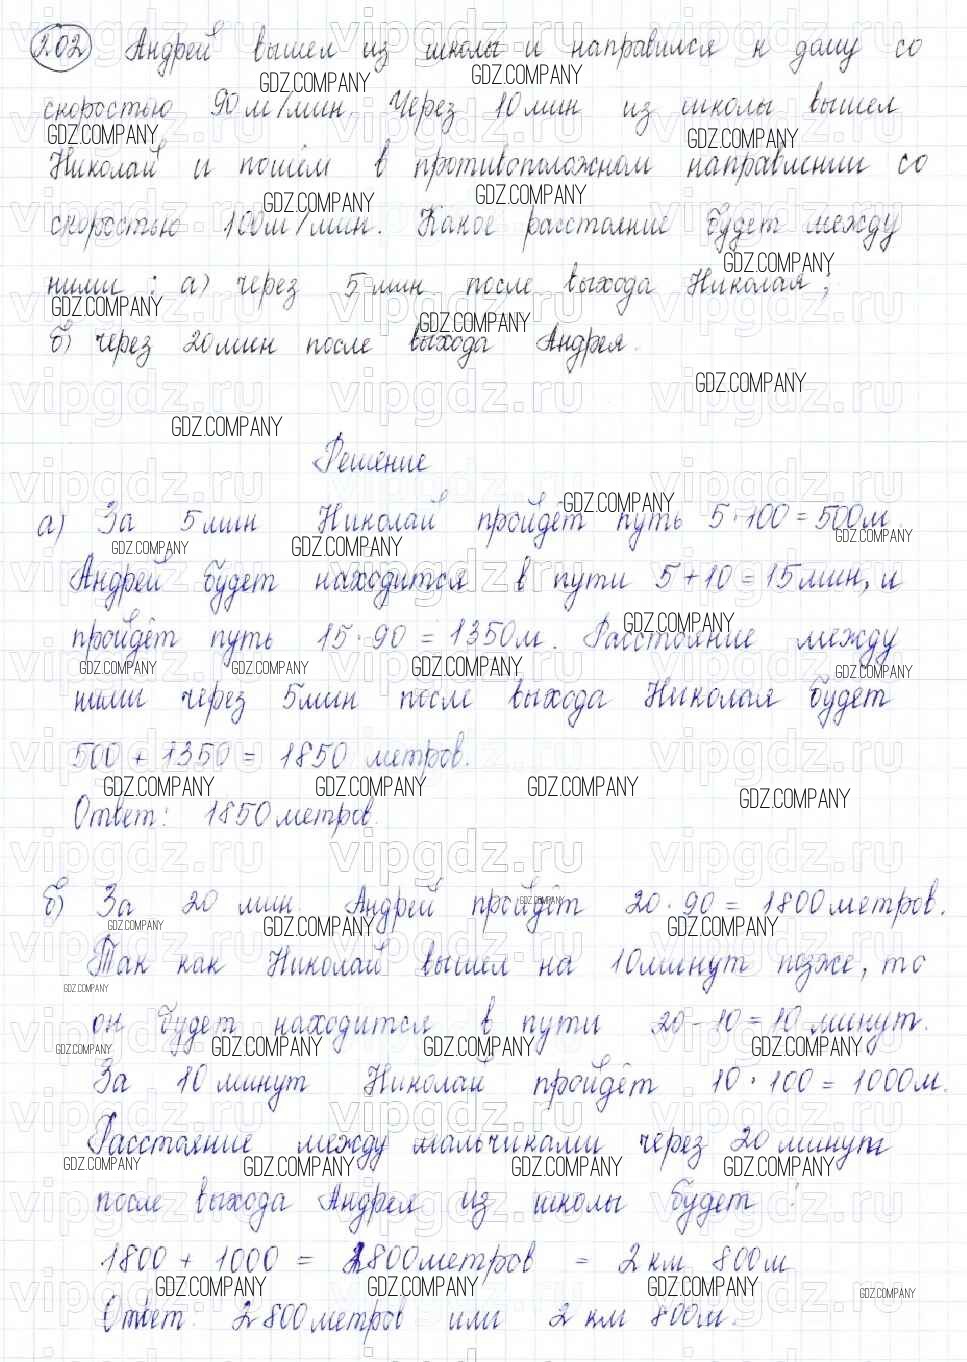 3.02 Андрей вышел из школы и направился к дому со
скоростью 90м/мин. Через 10мин из школы вышел
Николай и пошём в противоположном направлении со
скоростью 100м/мин. Какое расстояние будет между
ними : а) через 5 мин после выхода Николая;
б) через 20мин после выхода Андрея.
Решение
а) За 5мин Николай пройдёт путь 5·100=500м.
Андрей будет находится в пути 5+10=15мин, и
пройдёт путь 15·90=1350м. Расстояние между
ними через 5мин после выхода Николая будет
500+1350=1850 метров.
Ответ: 1850метров.
б) За 20 мин. Андрей пройдёт 20·90=1800метров.
Так как Николай вышел на 10минут позже, то
он будет находится в пути 20-10=10 минут.
За 10 минут Николай пройдёт 10·100=1000м.
Расстояние между мальчиками через 20 минут
после выхода Андрея из школы будет :
1800 + 1000 = 2800метров = 2км 800м
Ответ: 2800метров или 2 км 800м.